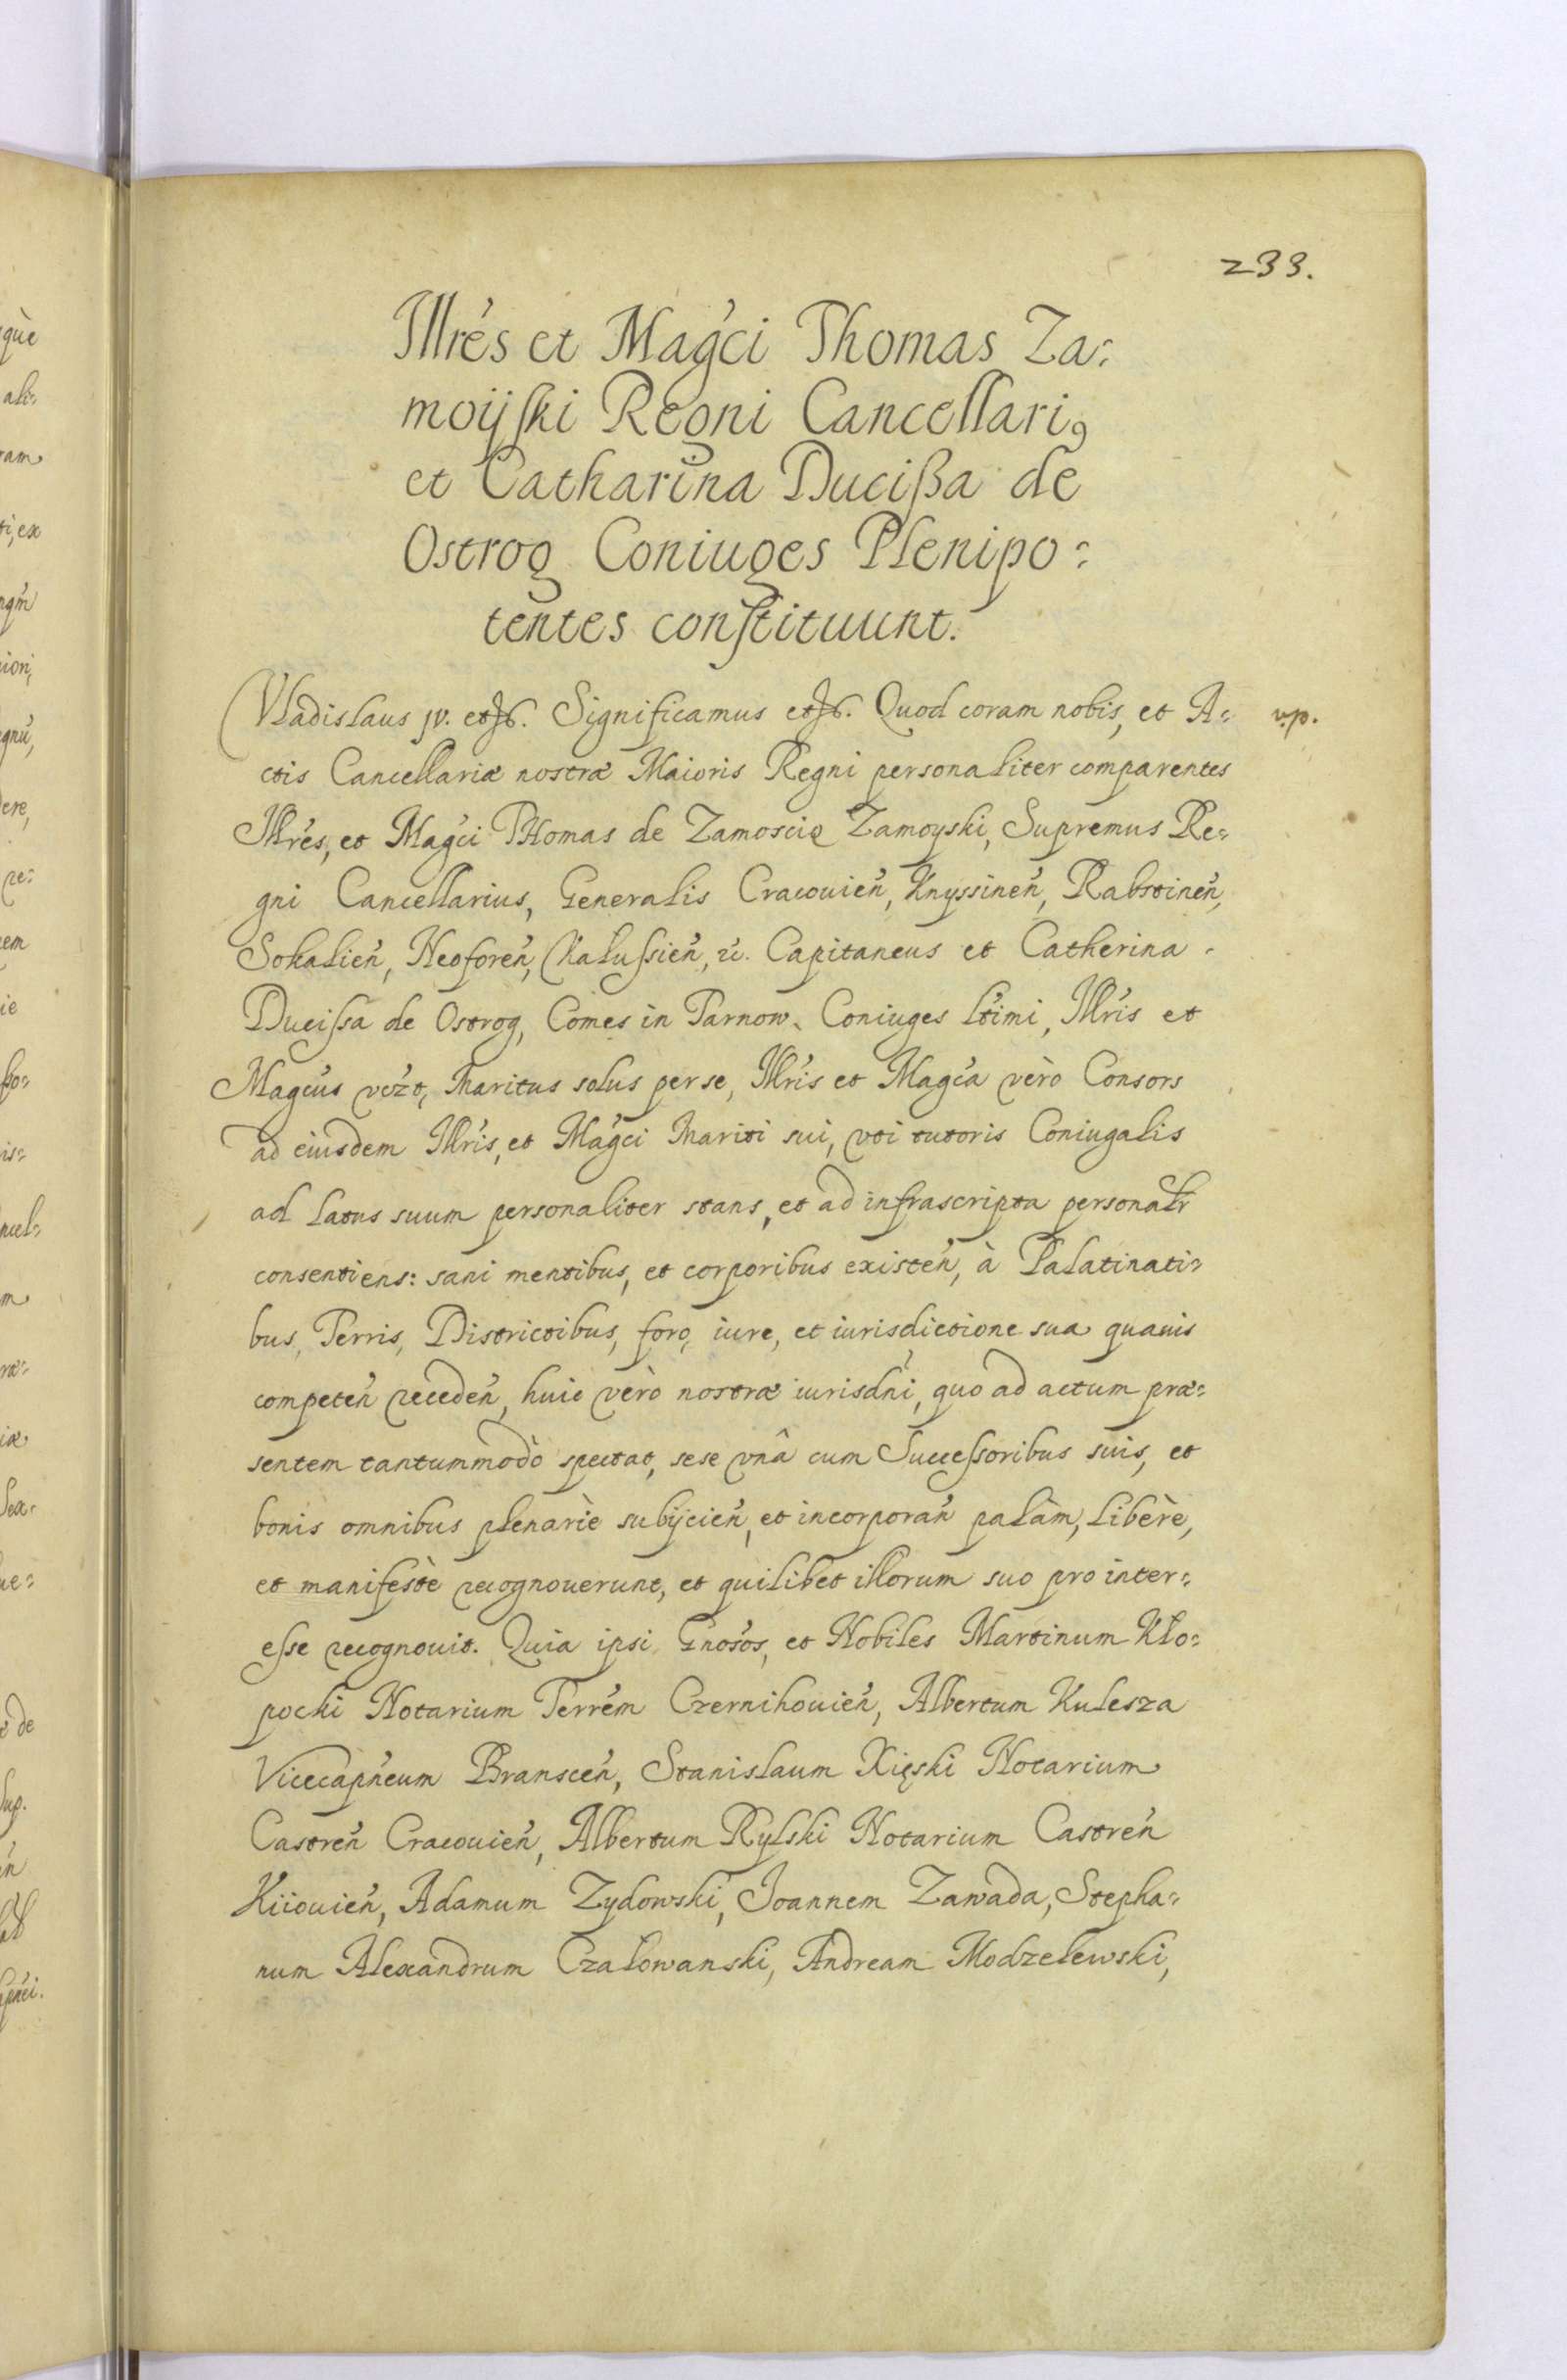 233.
Illrés et Mag̃ci Thomas Za:
moijski Regni Cancellari9
et Catharina Ducißa de
Ostrog Coniuges Plenipo:
tentes constituunt.
Vladislaus jv. etc. Significamus etc. Quod coram nobis, et A: v.p.
ctis Cancellariæ nostræ Maioris Regni personaliter comparentes
Illrés, et Mag̃ci THomas de Zamoscie Zamoyski, Supremus Re:
gni Cancellarius, Generalis Cracouien̄, Knyssinen̄, Rabstinen̄,
Sokalien̄, Neoforen̄, Kalussien̄, etc. Capitaneus et Catherina
Ducissa de Ostrog, Comes in Tarnow, Coniuges ltimi, Illris et
Magcus vczt, Maritus solus per se, Illris et Magca vèro Consors
ad eiusdem Illris, et Mag̃ci Mariti sui, vti tutoris Coniugalis
ad latus suum personaliter stans, et ad infrascripta personalr
consentiens: sani mentibus, et corporibus existen̄, à Palatinati:
bus, Terris, Districtibus, foro, iure, et iurisdictione sua quauis
competen̄ receden̄, huic vèro nostræ iurisdn̄i, quo ad actum præ:
sentem tantummodò spectat, sese vnâ cum Successoribus suis, et
bonis omnibus plenariè subijcien̄, et incorporan̄ palàm, liberè,
et manifestè recognouerunt, et quilibet illorum suo pro inter:
esse recognouit. Quia ipsi Gnosos, et Nobiles Martinum Kło:
pocki Notarium Terrem Czernihouien̄, Albertum Kulesza
Vicecapn̄eum Branscen̄, Stanislaum Xięski Notarium
Castren̄ Cracouien̄, Albertum Rylski Notarium Castren̄
Kiiouien̄, Adamum Zydowski, Joannem Zawada, Stepha:
num Alexandrum Czałowanski, Andream Modzelewski,